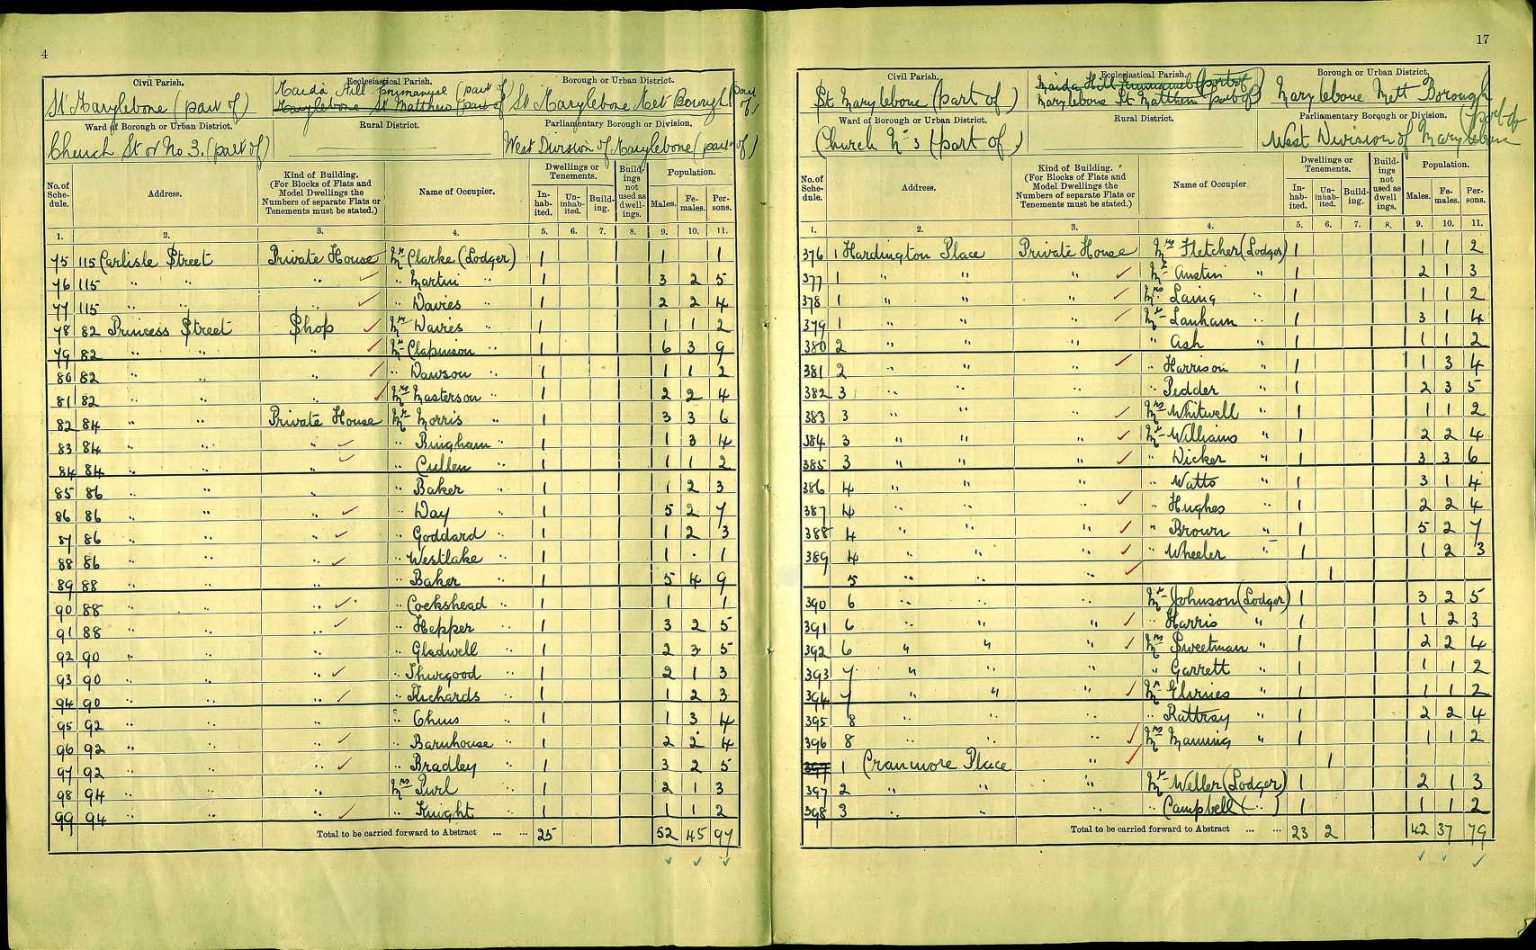 4
Civil Parish. Ecclesiastical Parish. Borough or Urban District.
St Marylebone (part of) Maida Hill Emmanuel (part of) Marylebone St Matthew (part of) St Marylebone Met Borough (part of)
Ward of Borough or Urban District. Rural District. Parliamentary Borough or Division.
Church St or No 3. (part of) West Division of Marylebone (part of)
No. of Schedule. Address. Kind of Building. (For Blocks of Flats and Model Dwellings the Numbers of separate Flats or Tenements must be stated.) Name of Occupier. Dwellings or Tenements. Inhabited. Uninhabited. Building. Buildings not used as dwellings. Population. Males. Females. Persons.
1. 2. 3. 4. 5. 6. 7. 8. 9. 10. 11.
75 115 Carlisle Street Private House Mr Clarke (Lodger) 1 1 1
76 115 " " " " Martini " 1 3 2 5
77 115 " " " " Davies " 1 2 2 4
78 82 Princess Street Shop Mr Davies " 1 1 1 2
79 82 " " " Mr Clapinson " 1 6 3 9
80 82 " " " " Dawson " 1 1 1 2
81 82 " " " Mrs Masterson " 1 2 2 4
82 84 " " Private House Mr Morris " 1 3 3 6
83 84 " " " " Bingham " 1 1 3 4
84 84 " " " " Cullen " 1 1 1 2
85 86 " " " " Baker " 1 1 2 3
86 86 " " " " Day " 1 5 2 7
87 86 " " " " Goddard " 1 1 2 3
88 86 " " " " Westlake " 1 1 . 1
89 88 " " " " Baker " 1 5 4 9
90 88 " " " " Cockshead " 1 1 1
91 88 " " " " Hepper " 1 3 2 5
92 90 " " " " Gladwell " 1 2 3 5
93 90 " " " " Thurgood " 1 2 1 3
94 90 " " " " Richards " 1 1 2 3
95 92 " " " " " 1 1 3 4
96 92 " " " " Barnhouse " 1 2 2 4
97 92 " " " " Bradley " 1 3 2 5
98 94 " " " Mrs Purl " 1 2 1 3
99 94 " " " " Knight " 1 1 1 2
Total to be carried forward to Abstract ... ... 25 52 45 97
17
Civil Parish. Ecclesiastical Parish. Borough or Urban District.
St Marylebone (part of) Maida Hill Emmanuel (part of) Marylebone St Matthew (part of) Marylebone Mett Borough (part of)
Ward of Borough or Urban District. Rural District. Parliamentary Borough or Division.
Church No 3 (part of) West Division of Marylebone
No. of Schedule. Address. Kind of Building. (For Blocks of Flats and Model Dwellings the Numbers of separate Flats or Tenements must be stated.) Name of Occupier. Dwellings or Tenements. Inhabited. Uninhabited. Building. Buildings not used as dwellings. Population. Males. Females. Persons.
1. 2. 3. 4. 5. 6. 7. 8. 9. 10. 11.
376 1 Hardington Place Private House Mrs Fletcher (Lodger) 1 1 1 2
377 1 " " " Mr Austin " 1 2 1 3
378 1 " " " Mrs Laing " 1 1 1 2
379 1 " " " Mr Lanham " 1 3 1 4
380 2 " " " " Ash " 1 1 1 2
381 2 " " " Harrison " 1 1 3 4
382 3 " " " " Pedder " 1 2 3 5
383 3 " " " Mrs Whitwell " 1 1 1 2
384 3 " " " Mr Williams " 1 2 2 4
385 3 " " " " Wicker " 1 3 3 6
386 4 " " " " Watts " 1 3 1 4
387 4 " " " " Hughes " 1 2 2 4
388 4 " " " " Brown " 1 5 2 7
389 4 " " " " Wheeler " 1 1 2 3
5 " " " 1
390 6 " " " Mr Johnson (Lodger) 1 3 2 5
391 6 " " " " Harris " 1 1 2 3
392 6 " " " Mrs Sweetman " 1 2 2 4
393 7 " " " " Garrett " 1 1 1 2
394 7 " " " Mr " 1 1 1 2
395 8 " " " " Rattray " 1 2 2 4
396 8 " " " Mrs Manning " 1 1 1 2
397 1 Cranmore Place " 1
397 2 " " " Mr Weller (Lodger) 1 2 1 3
398 3 " " " " Campbell ( " ) 1 1 1 2
Total to be carried forward to Abstract ... ... 23 2 42 37 79